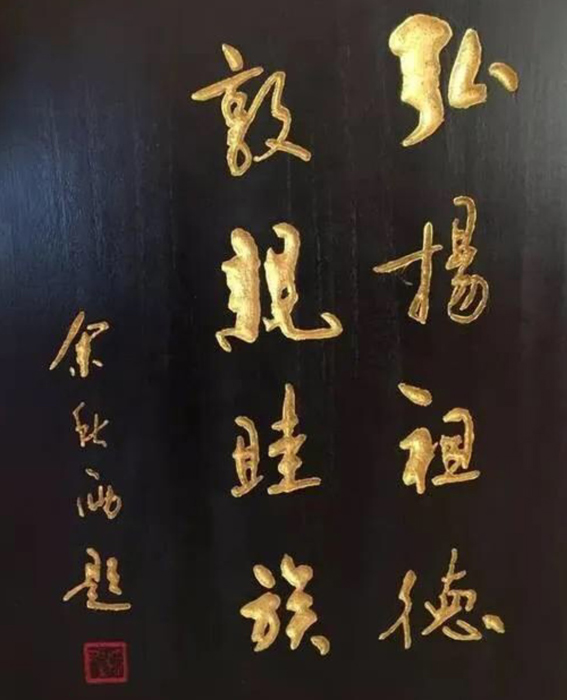 弘揚祖德
敦親睦族
余秋雨題